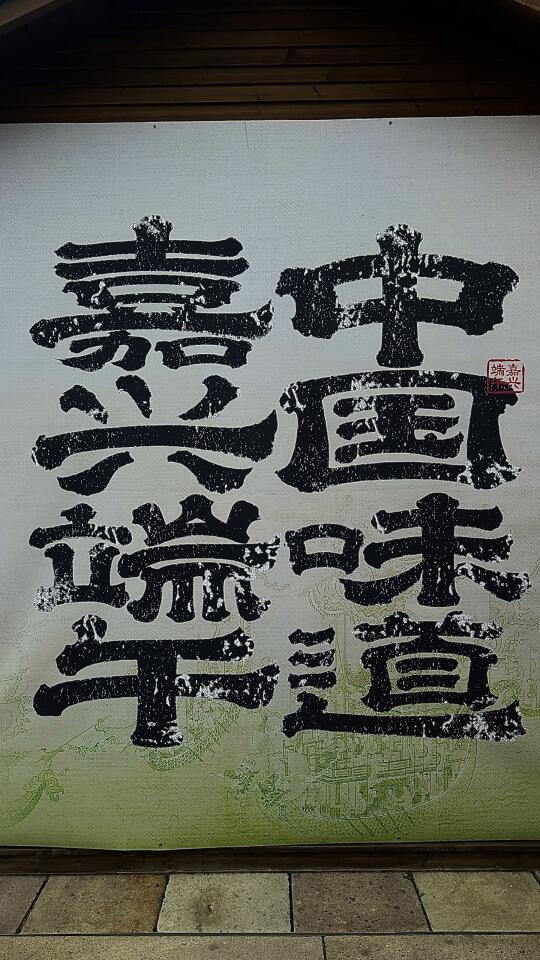 中国味道
嘉兴端午
嘉兴
端午